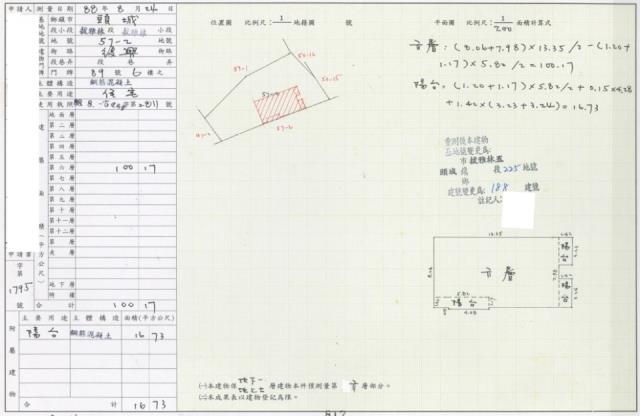 申請人
測量日期 88年8月24日
位置圖 比例尺：1/ 地籍圖 號
平面圖 比例尺：1/200 面積計算式
鄉鎮市 頭城
段小段 拔雅林 段 拔雅林 小段
地號 57-2 地號
街路 復興 街路
段巷弄 段 巷 弄
門牌 89號6樓之
主體構造 鋼筋混凝土
主要用途 住宅
使用執照
建築面積（平方公尺）
地面層
第二層
第三層
第四層
第五層
第六層 100 17
第七層
第八層
第九層
第十層
第十一層
第十二層
第 層
夾層
地下層
騎樓
合計 100 17
申請書
字第
1795
號
附屬建物
主要用途 主體構造 面積(平方公尺)
陽台 鋼筋混凝土 16 73
合計 16 73
57-1
50-16
50-15
57-2
57-2
13.35 /2 - (1.20+
1.17) × 5.82 /2 = 100.17
陽台：(1.20+1.17) × 5.82/2 + 0.15×4.28
+ 1.42×(3.23+3.24) = 16.73
重測後本建物
基地號變更為
市 拔雅林
頭城 鎮 段 225 地號
鄉
建號變更為 188 建號
註記人：
13.35
陽台
六層
陽台
5.82
陽台
4.28
㈠本建物係 層建物本件僅測量第 六 層部分。
㈡本成果表以建物登記為限。